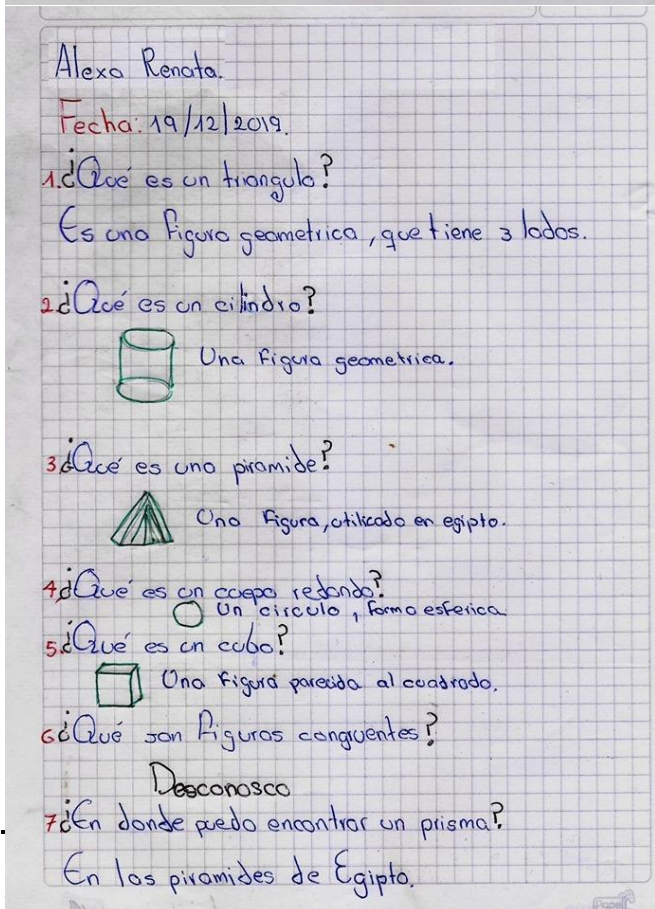 Alexa Renata.
Fecha: 19/12/2019.
1.¿Qué es un triangulo?
Es una figura geometrica, que tiene 3 lados.
2.¿Qué es un cilindro?
Una Figura geometrica.
3¿Qué es una piramide?
Una Figura, utilizada en egipto.
4¿Qué es un cuepo redondo?
Un circulo, forma esferica
5.¿Qué es un cubo?
Una Figura parecida al cuadrado.
6¿Qué son figuras congruentes?
Desconosco
7¿En donde puedo encontrar un prisma?
En las piramides de Egipto.